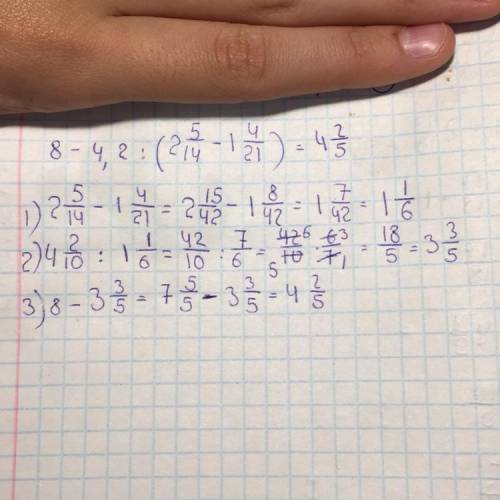 8 - 4,2 : (2 5/14 - 1 4/21) = 4 2/5
1) 2 5/14 - 1 4/21 = 2 15/42 - 1 8/42 = 1 7/42 = 1 1/6
2) 4 2/10 : 1 1/6 = 42/10 : 7/6 = 42 6/10 5 · 6 3/7 1 = 18/5 = 3 3/5
3) 8 - 3 3/5 = 7 5/5 - 3 3/5 = 4 2/5